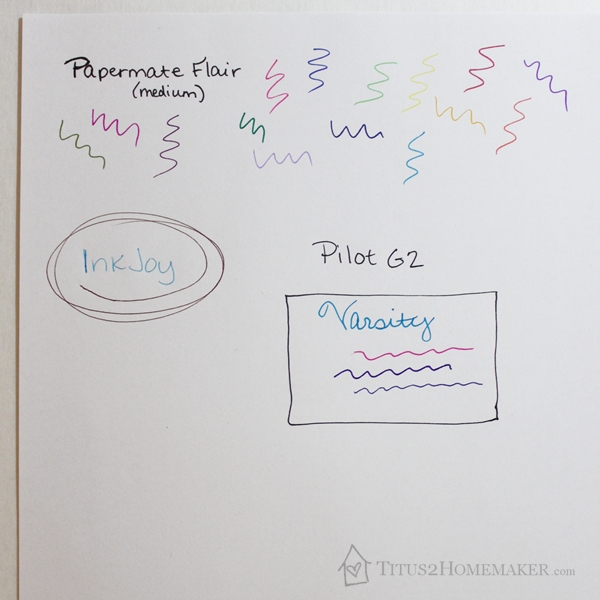 Papermate Flair
(medium)
InkJoy
Pilot G2
Varsity
TITUS2HOMEMAKER.com